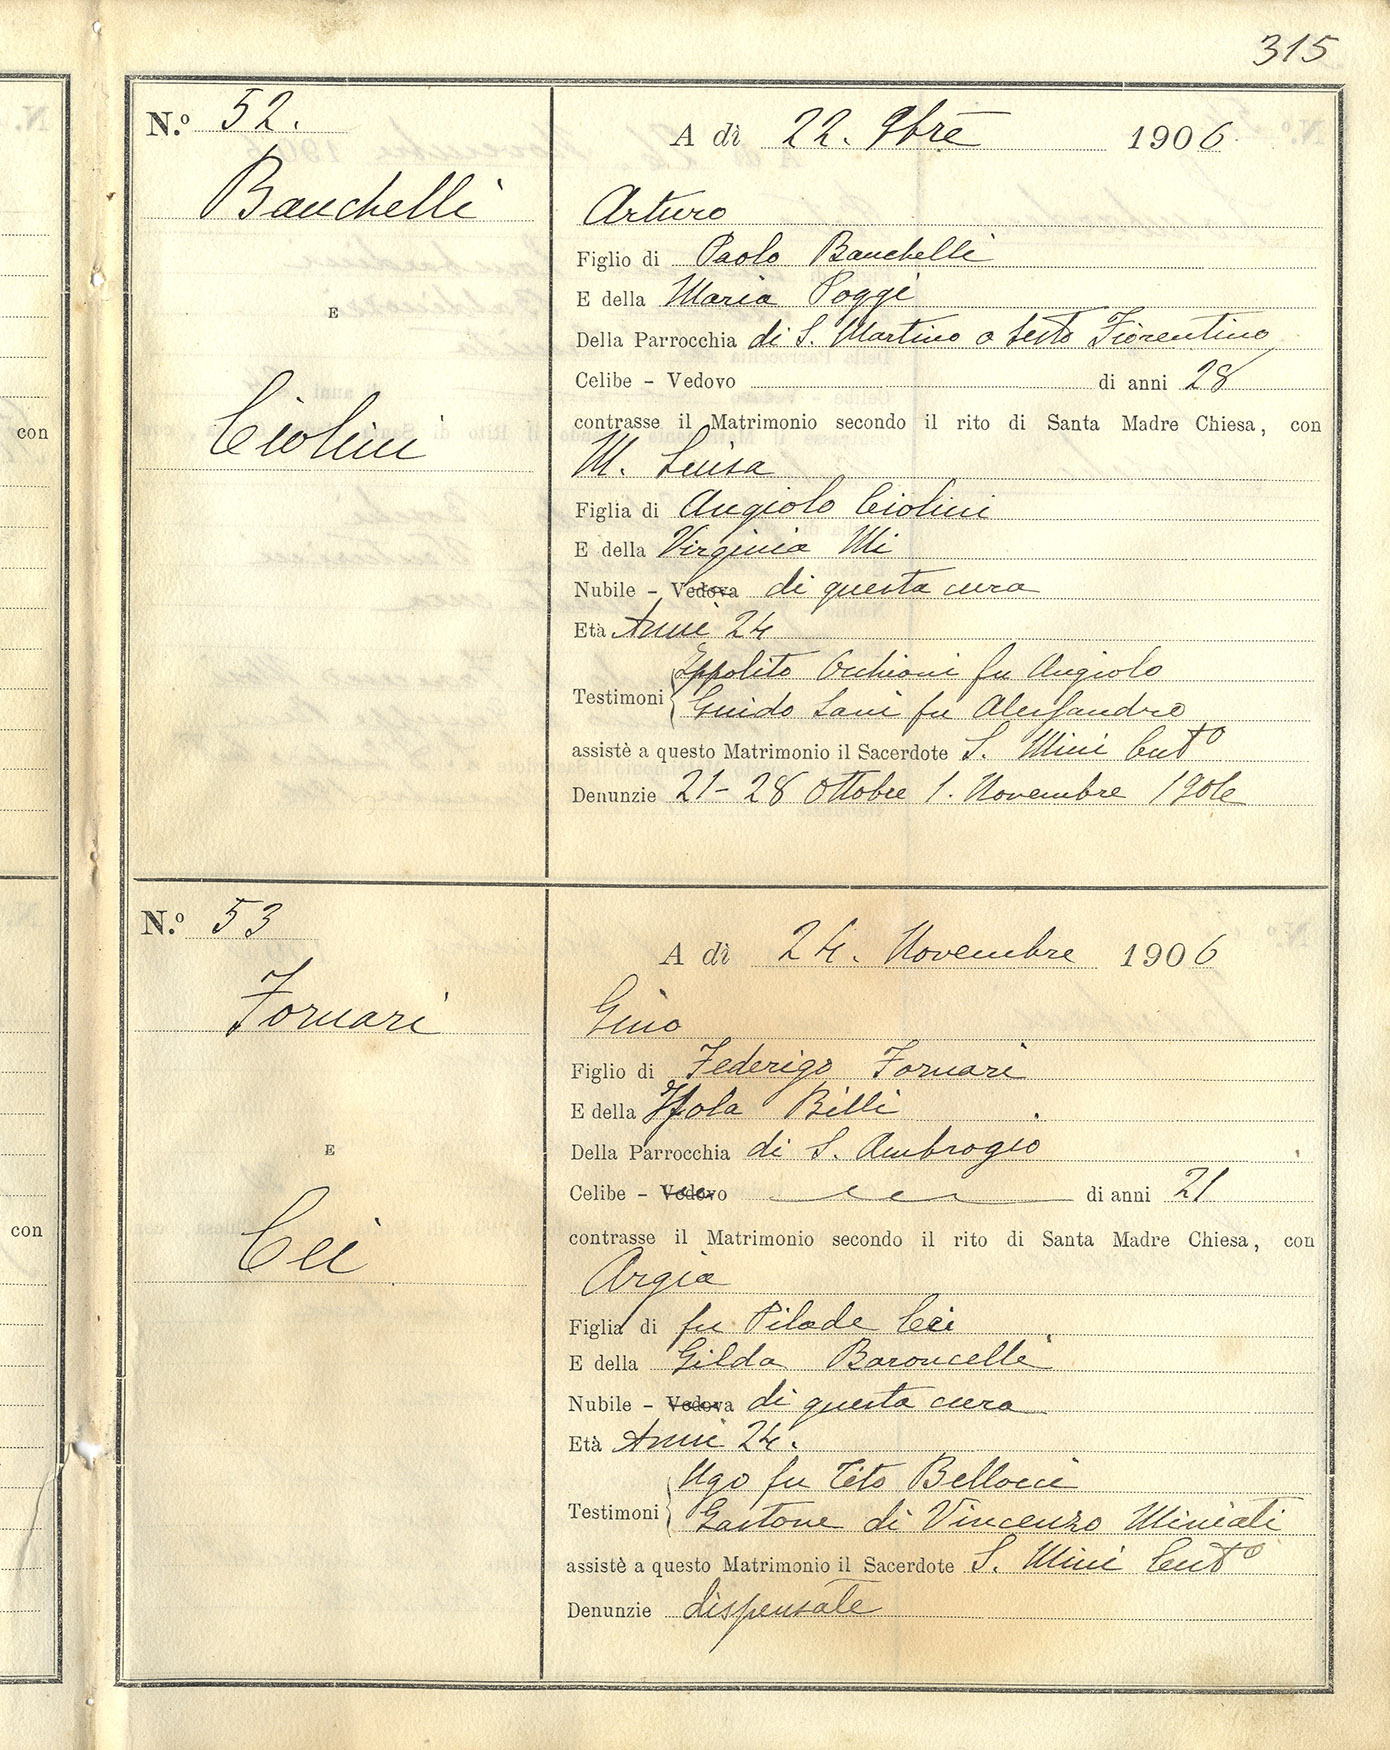 315
N.º 52.
A dì 22. 9bre 1906.
Banchelli
E
Ciolini
Arturo
Figlio di Paolo Banchelli
E della Maria Poggi
Della Parrocchia di S. Martino a Sesto Fiorentino
Celibe - Vedovo di anni 28
contrasse il Matrimonio secondo il rito di Santa Madre Chiesa, con
M. Luisa
Figlia di Angiolo Ciolini
E della Virginia Mi
Nubile - Vedova di questa cura
Età Anni 24
Ippolito Occhioni fu Angiolo
Testimoni
Guido Sani fu Alessandro
assistè a questo Matrimonio il Sacerdote S. Mini Curto
Denunzie 21 - 28 Ottobre 1. Novembre 1906
N.º 53
A dì 24. Novembre 1906
Fornari
E
Cei
Gino
Figlio di Federigo Fornari
E della Isola Billi
Della Parrocchia di S. Ambrogio
Celibe - Vedovo di anni 21
contrasse il Matrimonio secondo il rito di Santa Madre Chiesa, con
Argia
Figlia di fu Pilade Cei
E della Gilda Baroncelli
Nubile - Vedova di questa cura
Età Anni 24.
Ugo fu Tito Bellocci
Testimoni
Gastone di Vincenzo Miniati
assistè a questo Matrimonio il Sacerdote S. Mini Curto
Denunzie dispensate
con
con